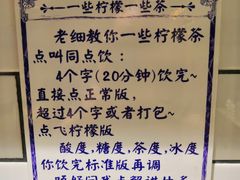 一些柠檬一些茶
老细教你一些柠檬茶
点叫同点饮:
4个字(20分钟)饮完~
直接点正常版,
超过4个字或者打包~
点飞柠檬版
酸度,糖度,茶度,冰度
你饮完标准版再调